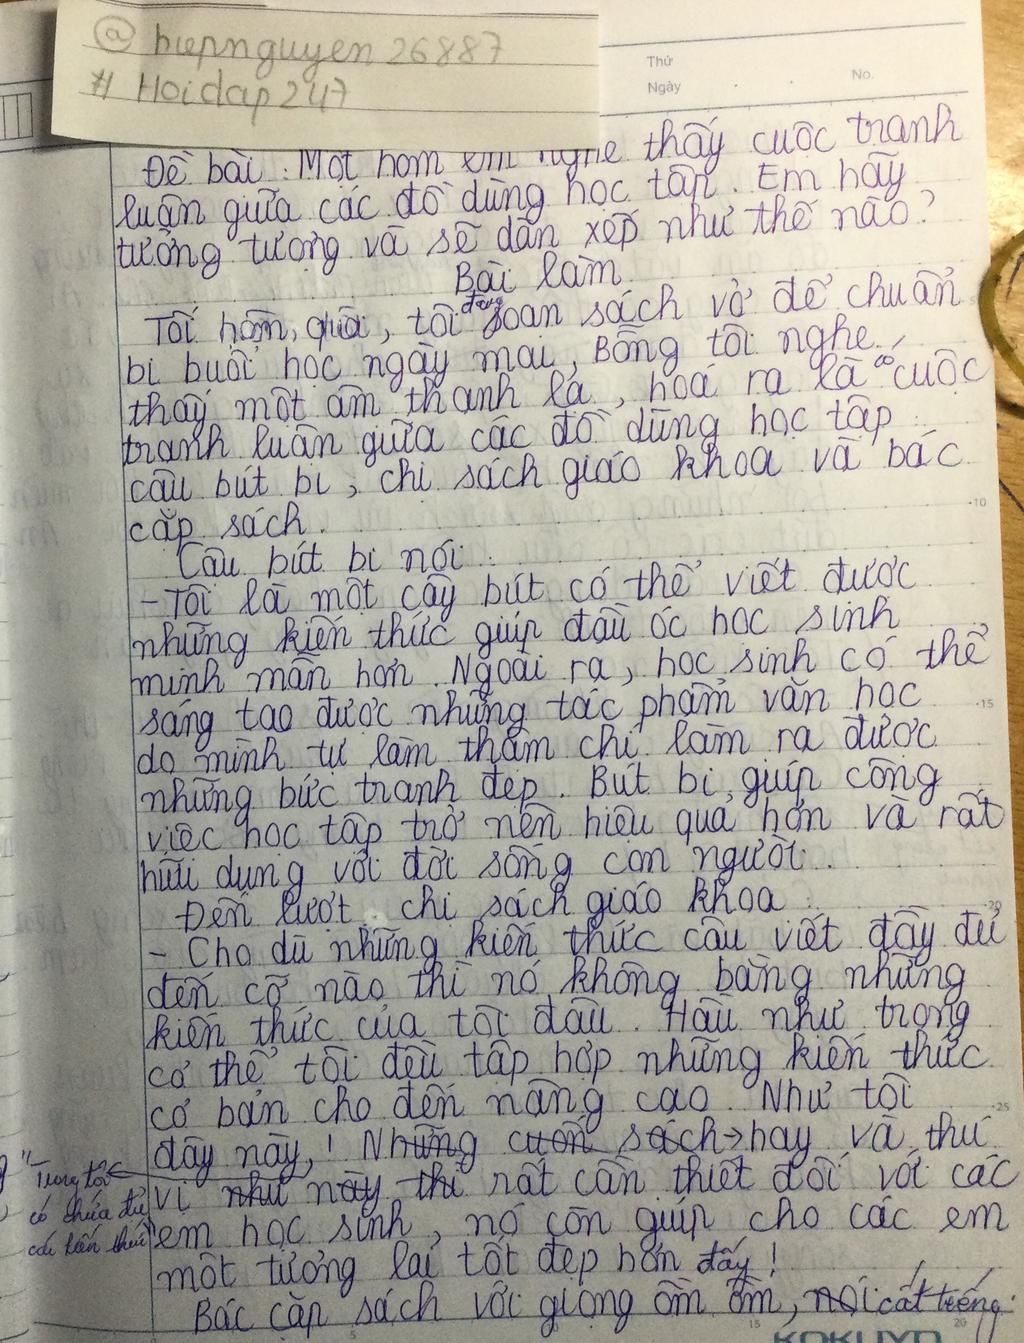 @ hiepnguyen26887
# Hoidap247
Thứ
Ngày
No.
Đề bài: Một hôm em nghe thấy cuộc tranh
luận giữa các đồ dùng học tập. Em hãy
tưởng tượng và sẽ dàn xếp như thế nào?
Bài làm
Tối hôm, qua, tôi đang soạn sách vở để chuẩn
bị buổi học ngày mai, Bỗng tôi nghe
thấy một âm thanh lạ, hoá ra là có cuộc
tranh luận giữa các đồ dùng học tập:
cậu bút bi, chị sách giáo khoa và bác
cặp sách.
Cậu bút bi nói:
- Tôi là một cây bút có thể viết được
những kiến thức giúp đầu óc học sinh
minh mẫn hơn. Ngoài ra, học sinh có thể
sáng tạo được những tác phẩm văn học
do mình tự làm thậm chí làm ra được
những bức tranh đẹp. Bút bi giúp công
việc học tập trở nên hiệu quả hơn và rất
hữu dụng với đời sống con người.
Đến lượt chị sách giáo khoa:
- Cho dù những kiến thức cậu viết đầy đủ
đến cỡ nào thì nó không bằng những
kiến thức của tôi đâu. Hầu như trong
cơ thể tôi đều tập hợp những kiến thức
cơ bản cho đến nâng cao. Như tôi
đây này,! Những cuốn sách hay và thú
vị như này thì rất cần thiết đối với các
Trong tôi
có chứa đủ
các kiến thức
em học sinh, nó còn giúp cho các em
một tương lai tốt đẹp hơn đấy!
Bác cặp sách với giọng ồm ồm, nói cất tiếng:
KOKUYO